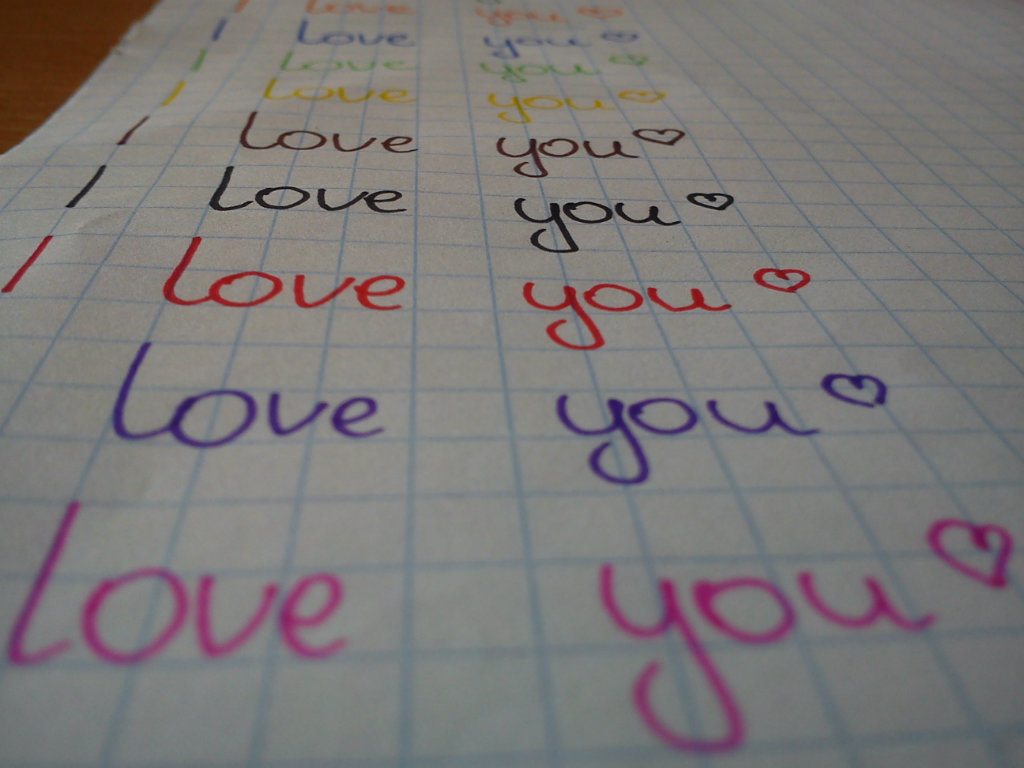 I love you ♡
I love you ♡
I love you ♡
I love you ♡
I love you ♡
I love you ♡
I love you ♡
love you ♡
love you ♡